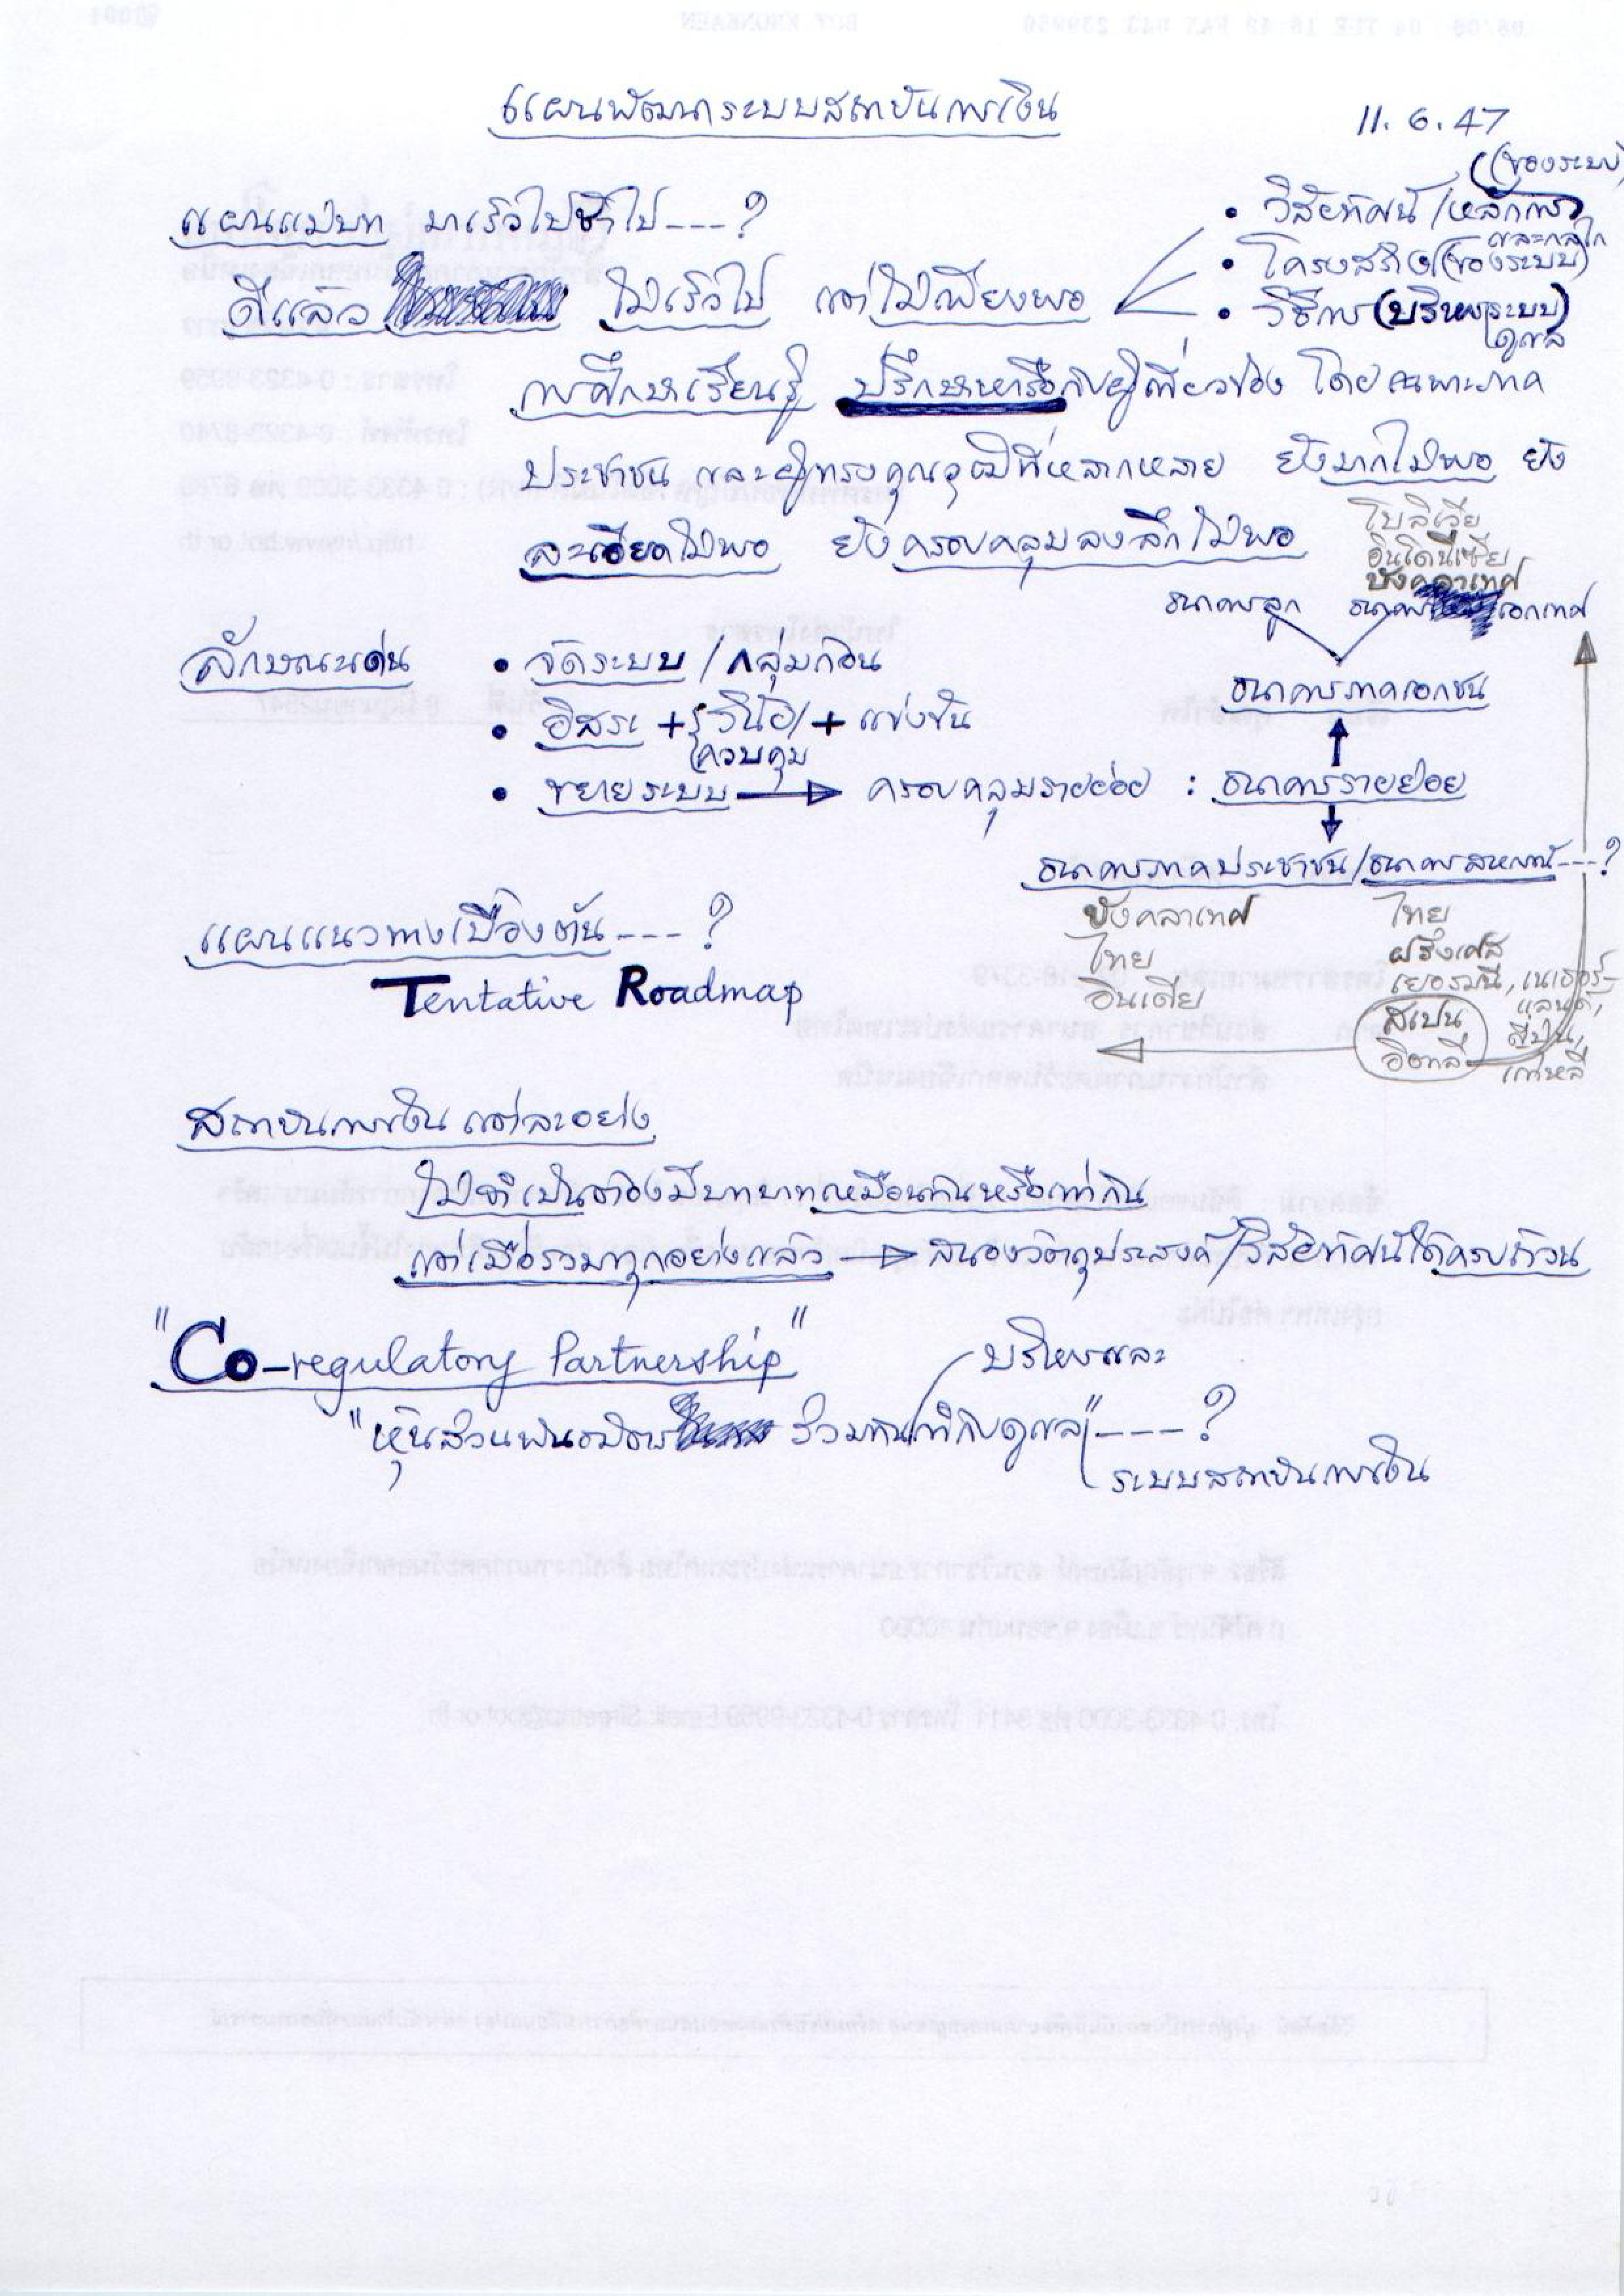 แผนพัฒนาระบบสถาบันการเงิน
11. 6. 47
แผนแม่บท มาเร็วไปช้าไป---?
ดีแล้ว ไม่เร็วไป แต่ไม่เพียงพอ
(ของระบบ)
• วิสัยทัศน์/หลักการ
และกลไก
• โครงสร้าง (ของระบบ)
• วิธีการ (บริหารระบบ)
ดูแล
การศึกษาเรียนรู้ ปรึกษาหารือกับผู้เกี่ยวข้อง โดยเฉพาะภาค
ประชาชน และผู้ทรงคุณวุฒิที่หลากหลาย ยังมากไม่พอ ยัง
ละเอียดไม่พอ ยังครอบคลุมลงลึกไม่พอ
โบลิเวีย
อินโดนีเซีย
บังคลาเทศ
ธนาคารลูก ธนาคาร เอกเทศ
ลักษณะเด่น
• จัดระบบ / กลุ่มก้อน
ธนาคารภาคเอกชน
• อิสระ + วินัย/ + แข่งขัน
ควบคุม
• ขยายระบบ → ครอบคลุมรายย่อย : ธนาคารรายย่อย
ธนาคารภาคประชาชน/ธนาคารสหกรณ์---?
บังคลาเทศ ไทย
ไทย ฝรั่งเศส
อินเดีย เยอรมนี, เนเธอร์-
แลนด์,
สเปน ญี่ปุ่น,
อิตาลี เกาหลี
แผนแนวทางเบื้องต้น---?
Tentative Roadmap
สถาบันการเงินแต่ละอย่าง
ไม่จำเป็นต้องมีบทบาทเหมือนกันหรือเท่ากัน
แต่เมื่อรวมทุกอย่างแล้ว → สนองวัตถุประสงค์/วิสัยทัศน์ได้ครบถ้วน
"Co-regulatory Partnership"
บริหารและ
"หุ้นส่วนพันธมิตร ร่วมกันกำกับดูแล"---?
ระบบสถาบันการเงิน